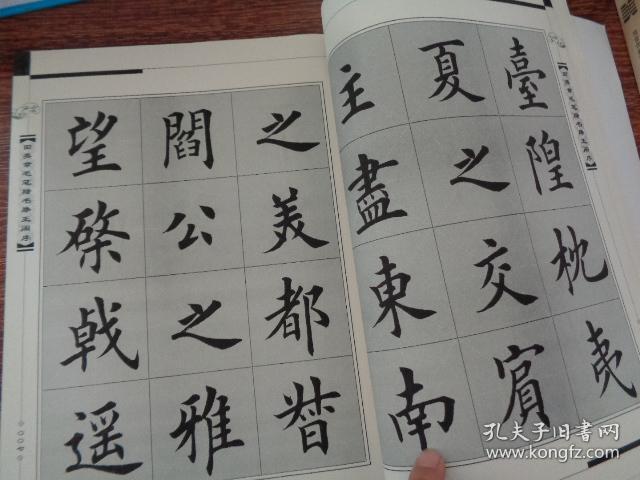 臺隍枕夷
夏之交賓
主盡東南
之美都督
閻公之雅
望棨戟遥
【田英章毛笔楷书滕王阁序】
【田英章毛笔楷书滕王阁序】
孔夫子旧书网
www.kongfz.com